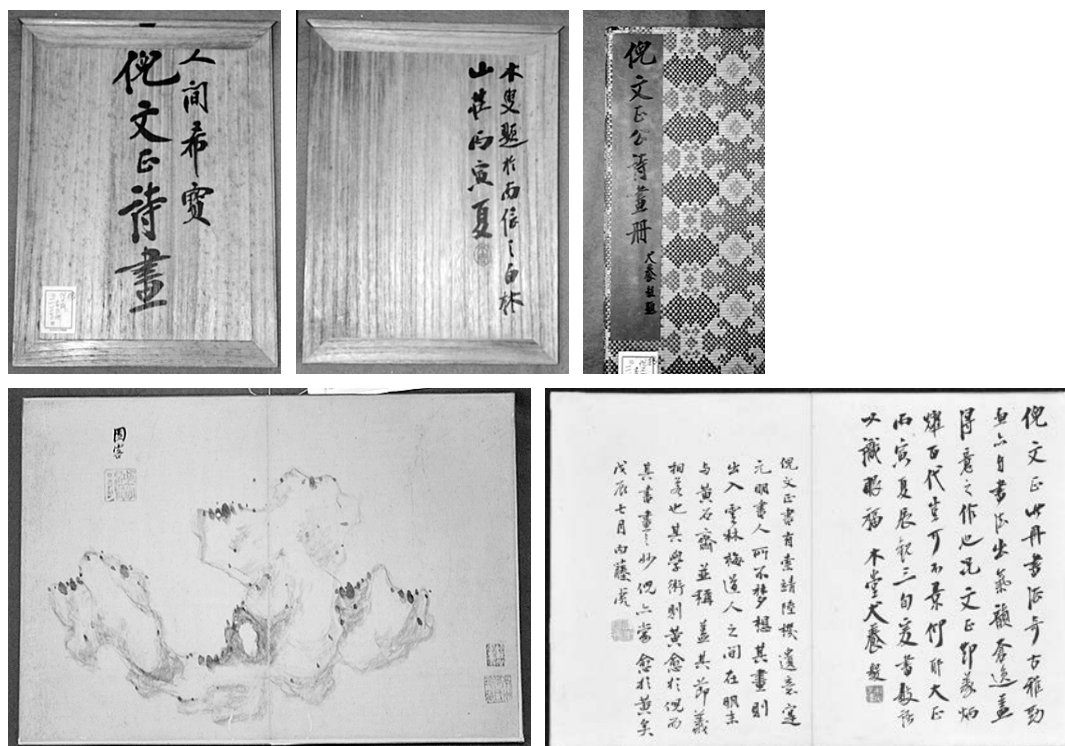 人间希寶
倪文正詩畫
木叟题於两信之白林
山莊丙寅夏
倪文正公詩畫册
犬養毅題
倪文正此册書法奇古雅勁
畫亦自書法出氣韻蒼逸蓋
得意之作也况文正節義炳
燿百代豈可不景仰耶大正
丙寅夏辰観三旬爰書數語
以識眼福 木堂犬養毅
倪文正書有索靖陸機遺意寔
元明書人所不梦想其畫則
出入雲林梅道人之間在明末
与黄石齋並稱蓋其節義
相若也其學術則黄愈於倪而
其書畫之妙倪亦當愈於黄矣
戊辰七月内藤虎